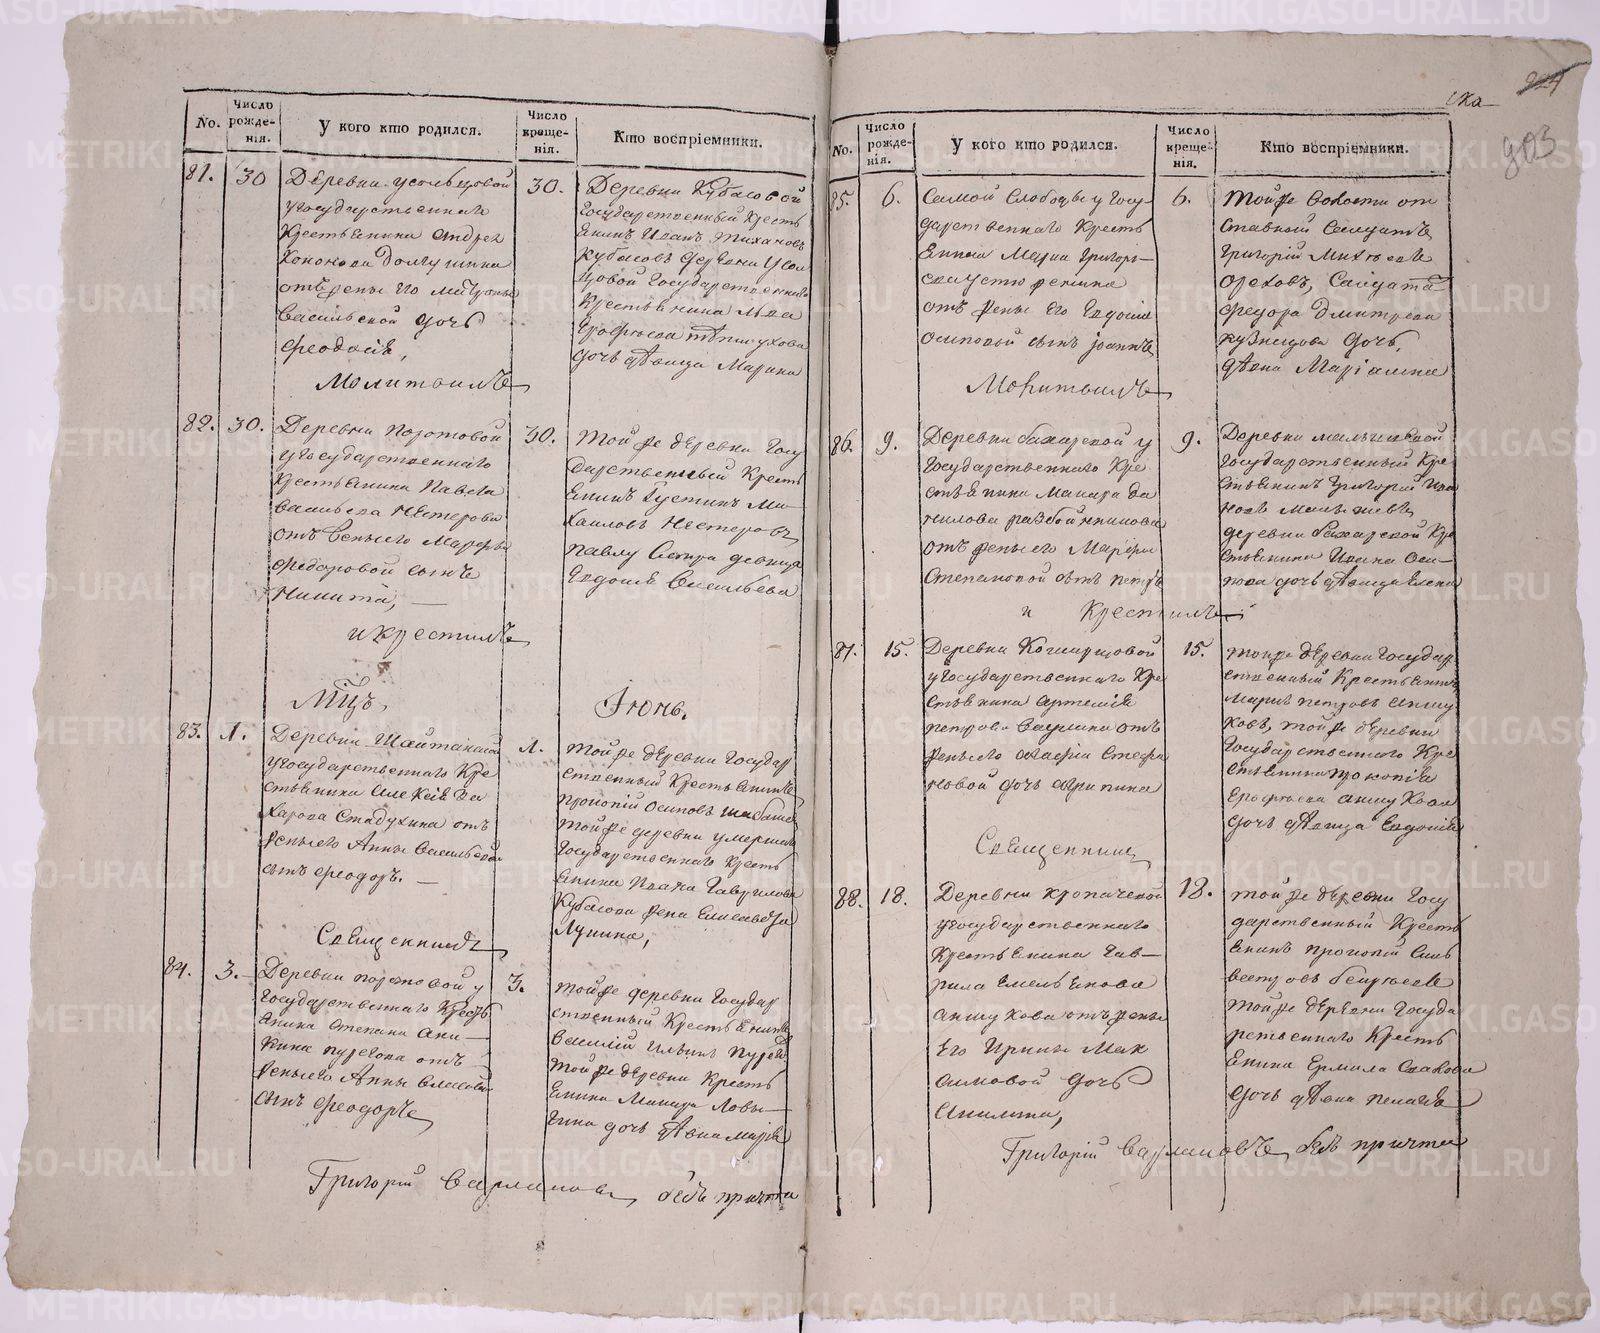 ска
224
803
No.
Число рожде-нія.
У кого кто родился.
Число креще-нія.
Кто воспріемники.
81.
30
Деревни Усольцовой
у государственнаго
крестьянина Андрея
Кононова Долгушина
отъ жены его Матроны
Васильевой дочь
Феодосія,
30.
Деревни Кубасовой
государственный кресть
янинъ Иванъ Тихановъ
Кубасовъ деревни Усол
цовой государственнаго
крестьянина Льва
Ерофѣева
дочь дѣвица Марина
Молитвилъ
82.
30.
Деревни Поротовой
у государственнаго
крестьянина Павла
Васильева Нестерова
отъ жены его Марфы
Федоровой сынъ
Никита,
30.
Той же деревни госу
дарственный кресть
янинъ Густинъ Ми-
хаиловъ Нестеровъ
Павлу сестра девица
Евдокия Васильева
и крестилъ
Мцъ,
Іюнь.
83.
1.
Деревни Шайтанской
у государственнаго кре
стьянина Алексія За
харова Стадухина отъ
жены его Анны Васильевой
сынъ Феодоръ.
1.
Той же деревни государ
ственный крестьянинъ
Прокопій Осиповъ
той же деревни умершаго
государственнаго кресть
янина Гаврилова
Кубасова жена Елисавета
Лукина,
Священникъ
84.
3.
Деревни Поротовой у
государственнаго кресть
янина Степана Ани-
кина отъ
жены его Анны Власовой
сынъ Феодоръ
3.
Той же деревни государ
ственный крестьянинъ
Василій Ильинъ
той же деревни кресть
янина Макара Ловы-
гина дочь дѣвка Марія
Григорій Варлаковъ безъ причта
No.
Число рожде-нія.
У кого кто родился.
Число креще-нія.
Кто воспріемники.
85.
6.
Самой Слободы у госу
дарственнаго кресть
янина Марка Григорь-
ева Устюжанина
отъ жены его Евдокіи
Осиповой сынъ Іоаннъ
6.
Той же волости от
ставной салдатъ
Григорій Михѣевъ
Ореховъ, салдата
Федора Дмитрева
Кузнецова дочь,
дѣвка Маріамна
Молитвилъ
86.
9.
Деревни Бахарской у
государственнаго кре
стьянина Макара Да
нилова Разбойникова
отъ жены его Марфы
Степановой сынъ Петръ
9.
Деревни Малышевой
государственный кре
стьянинъ Григорій Ива
новъ Малышевъ,
деревни Бахарской кре
стьянина Ивана Оси-
пова дочь дѣвица Елена
и крестилъ
87.
15.
Деревни Комарицовой
у государственнаго кре
стьянина Артемія
Петрова отъ
жены его Агафіи Стефа
новой дочь Агрипина
15.
Той же деревни государ
ственный крестьянинъ
Марко Петровъ Аншу
ковъ, той же деревни
государственнаго кре
стьянина Прокопія
Ерофѣева Аншукова
дочь дѣвица Евдокія
Священникъ
88.
18.
Деревни Кропачевой
у государственнаго
крестьянина Гав-
рила Емельянова
Аншукова отъ жены
его Ирины Мак
симовой дочь
Акилина,
18.
Той же деревни госу
дарственный кресть
янинъ Прокопій Силь
вестровъ
той же деревни госуда
рственнаго кресть
янина Ермила
дочь дѣвка Пелагія
Григорій Варлаковъ безъ причта
METRIKI.GASO-URAL.RU